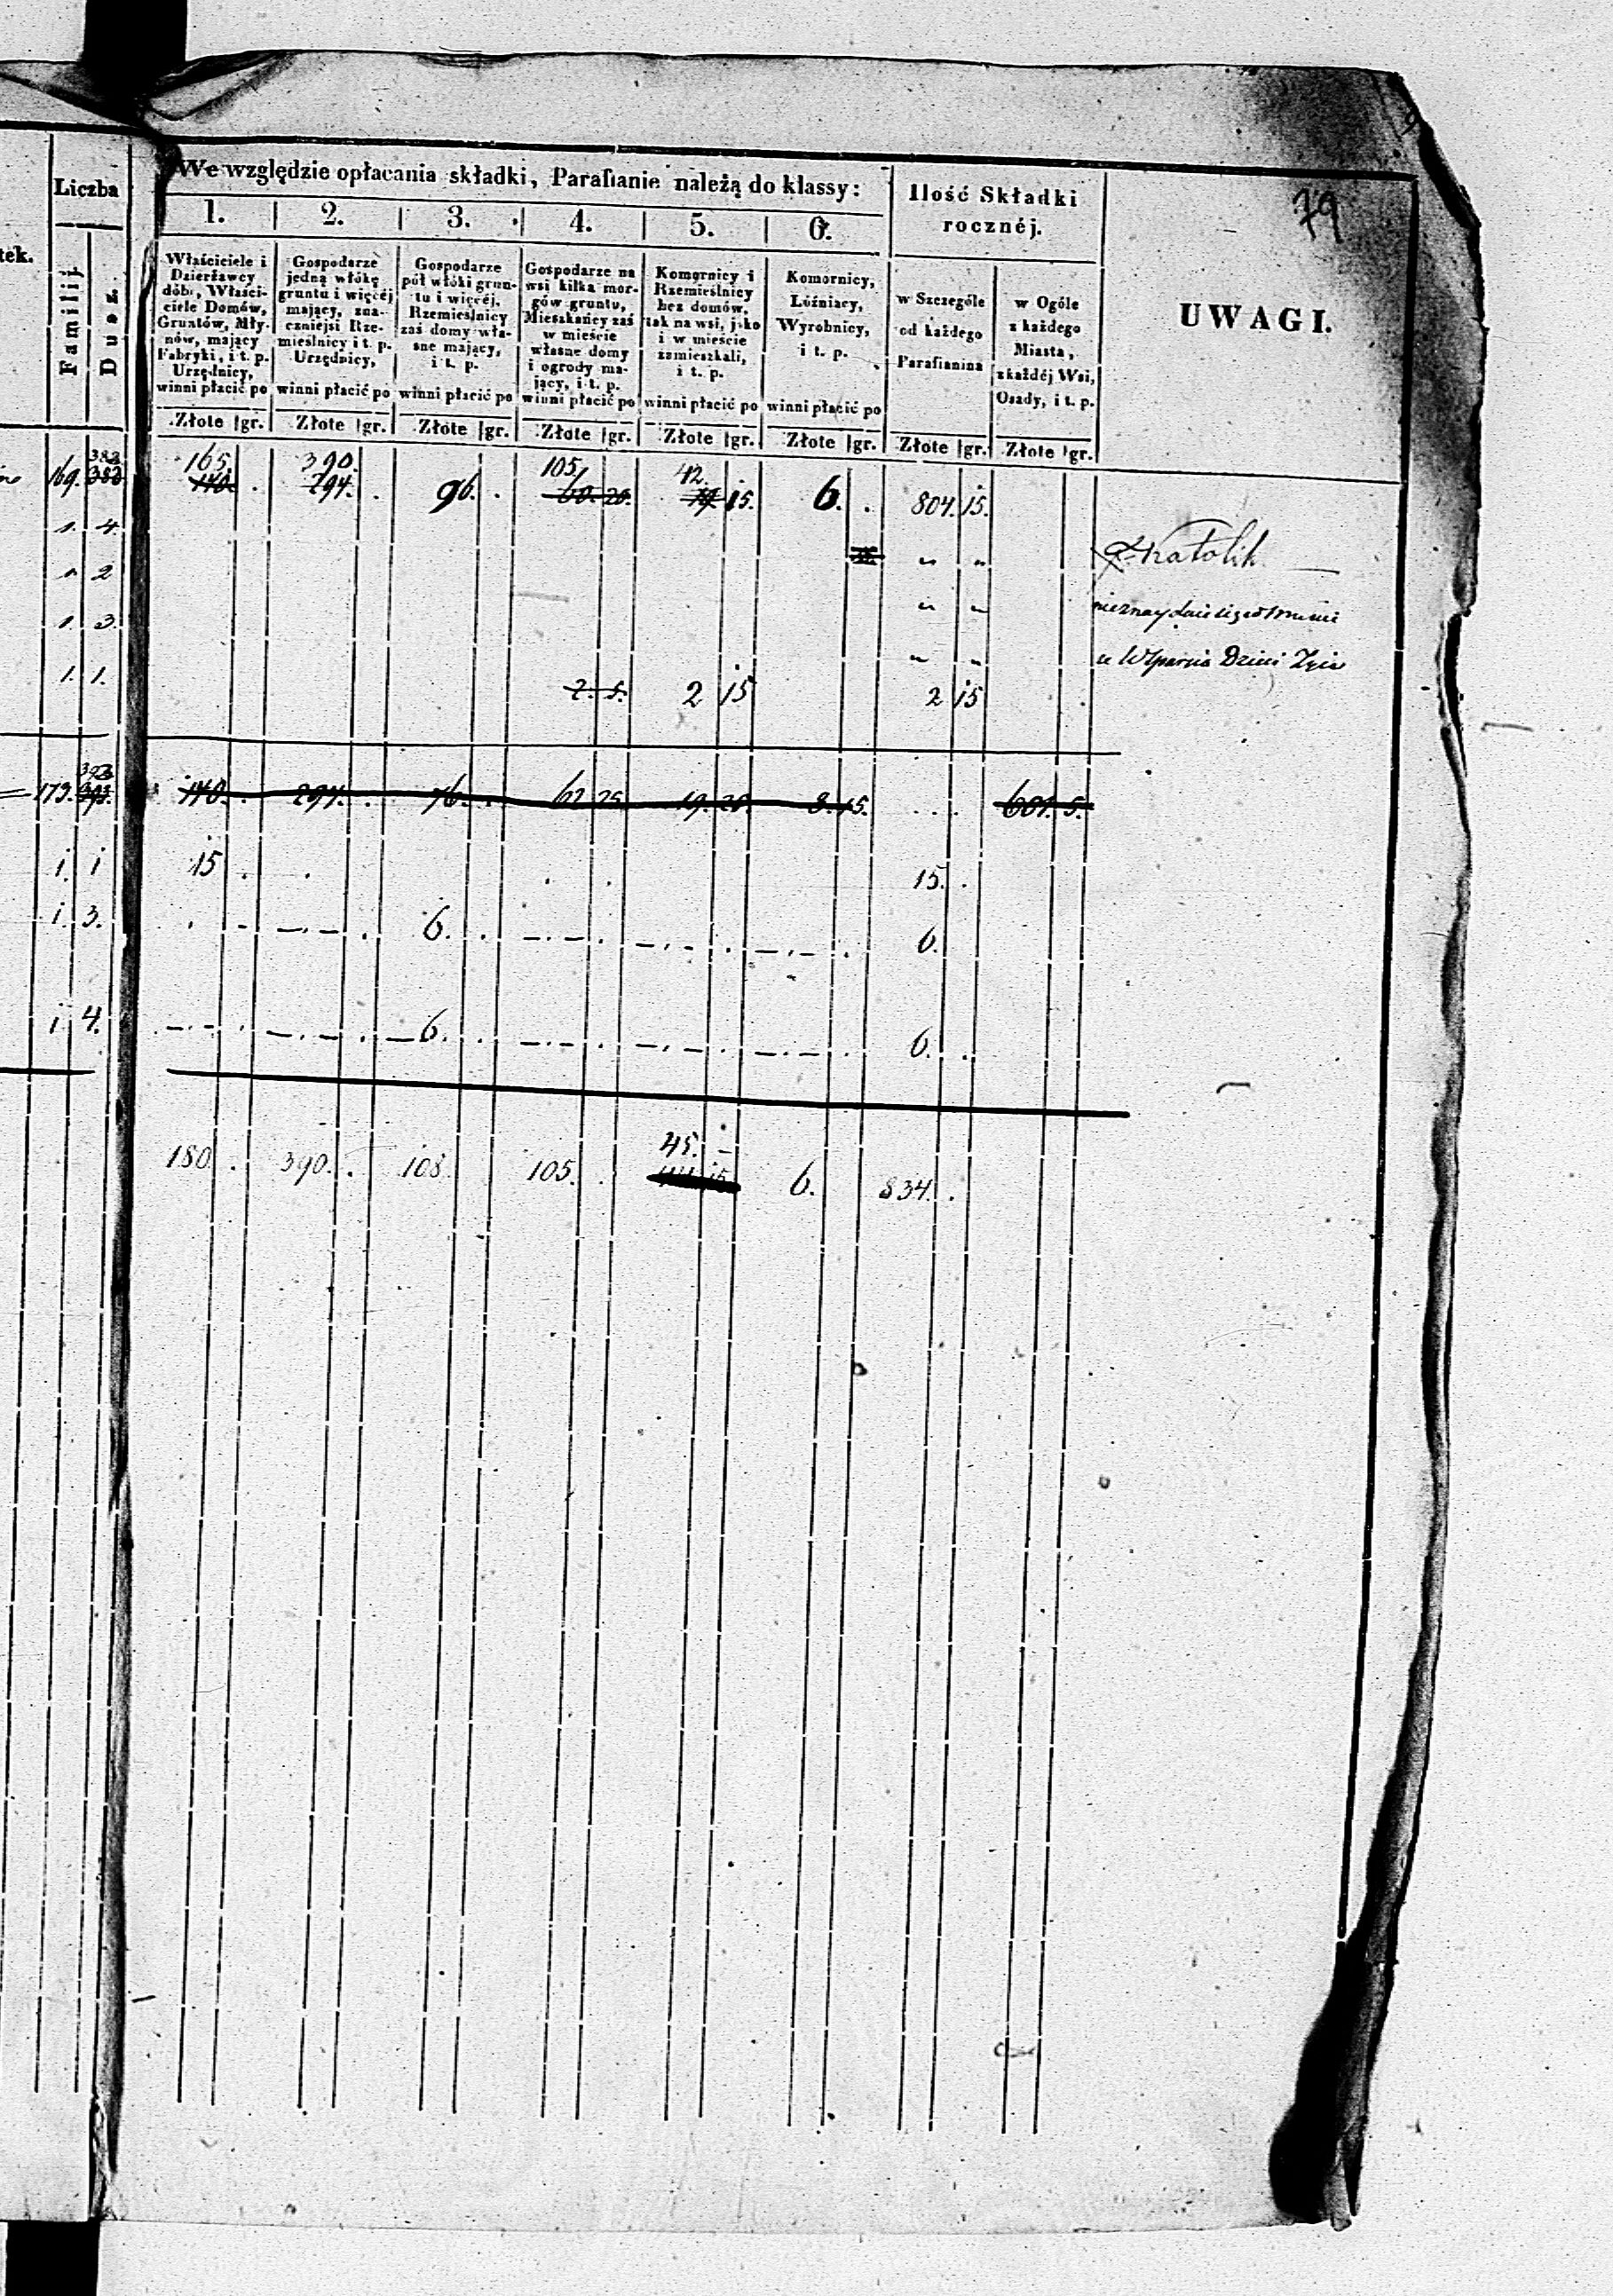 79
tek.
Liczba
Familij
Dusz.
We względzie opłacania składki, Parafianie należą do klassy:
Ilość Składki
rocznéj.
UWAGI.
1. 2. 3. 4. 5. 6.
Właściciele i
Dzierżawcy
dóbr, Właści-
ciele Domów,
Gruntów, Mły-
nów, mający
Fabryki, i t. p.
Urzędnicy,
winni płacić po
Gospodarze
jedną włókę
gruntu i więcéj
mający, zna-
czniejsi Rze-
mieślnicy i t. p.
Urzędnicy,
winni płacić po
Gospodarze
pół włóki grun-
tu i więcéj,
Rzemieślnicy
zaś domy wła-
sne mający,
i t. p.
winni płacić po
Gospodarze na
wsi kilka mor-
gów gruntu,
Mieszkańcy zaś
w mieście
własne domy
i ogrody ma-
jący, i t. p.
winni płacić po
Komornicy i
Rzemieślnicy
bez domów,
tak na wsi, jako
i w mieście
zamieszkali,
i t. p.
winni płacić po
Komornicy,
Luźniacy,
Wyrobnicy,
i t. p.
winni płacić po
w Szczególe
od każdego
Parafianina
w Ogóle
z każdego
Miasta,
z każdéj Wsi,
Osady, i t. p.
Złote gr. Złote gr. Złote gr. Złote gr. Złote gr. Złote gr. Złote gr. Złote gr.
383 165. 390. 105 42.
169. 383 140. 294. 96. 60. 20. 15. 6. 804. 15.
1. 4. Katolik
1. 2
1. 3. Dzieci
1. 1. 2. 5. 2 15 2 15
393
173. 393. 140. 294. 76. 62 25. 19. 20. 8. 15. 601. 5.
1. 1 15 15.
1. 3. 6. 6.
1. 4. 6. 6.
45. –
180. 390. 108. 105. 6. 834.